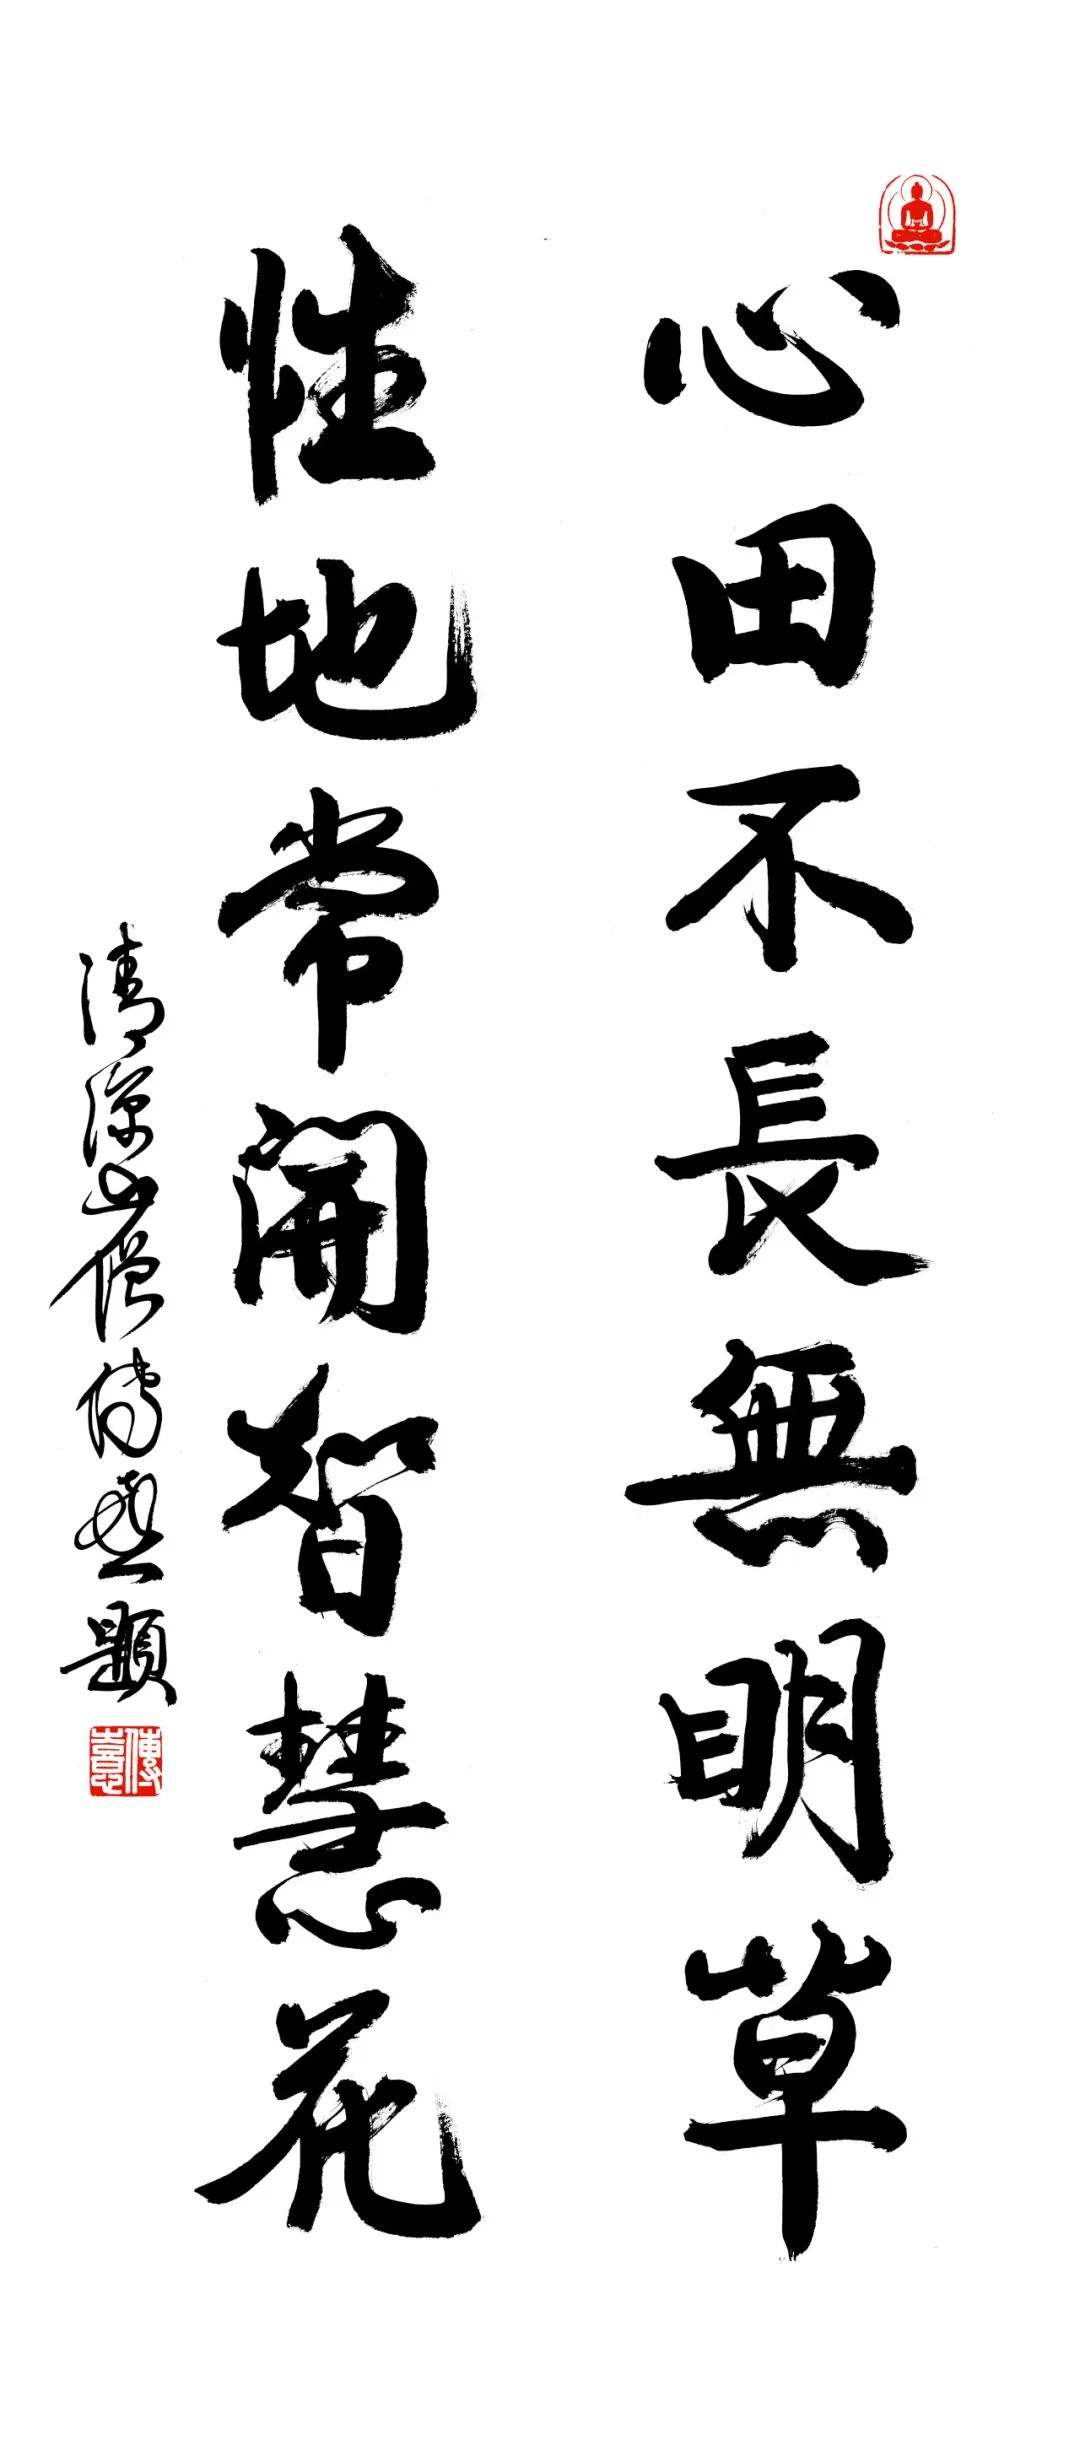 心田不長無明草
性地常開智慧花
清涼山僧傳喜題
傳喜